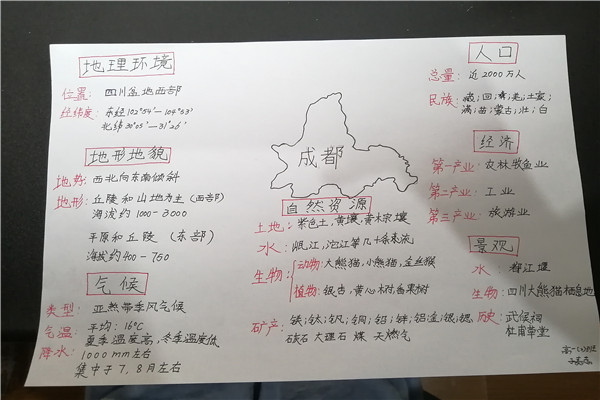 地理环境
位置: 四川盆地西部
经纬度: 东经102°54′—104°53′
北纬30°05′—31°26′
地形地貌
地势: 西北向东南倾斜
地形: 丘陵和山地为主(西部)
海泼约1000-3000
平原和丘陵(东部)
海拔约400-750
气候
类型: 亚热带季风气候
气温: 平均:16℃
夏季温度高,冬季温度低
降水: 1000mm左右
集中于7,8月左右
成都
自然资源
土地: 紫色土,黄壤,黄棕壤
水: 岷江,沱江等几十条河流
生物: 动物:大熊猫,小熊猫,金丝猴
植物:银杏,黄心树,香果树
矿产: 铁;钛;钒;铜;铅;锌;铝;金;银;锶
大理石 煤 天燃气
人口
总量: 近2000万人
民族: 藏;回;羌;土家;
满;苗;蒙古;壮;白
经济
第一产业: 农林牧鱼业
第二产业: 工业
第三产业: 旅游业
景观
水: 都江堰
生物: 四川大熊猫栖息地
历史: 武侯祠
杜甫草堂